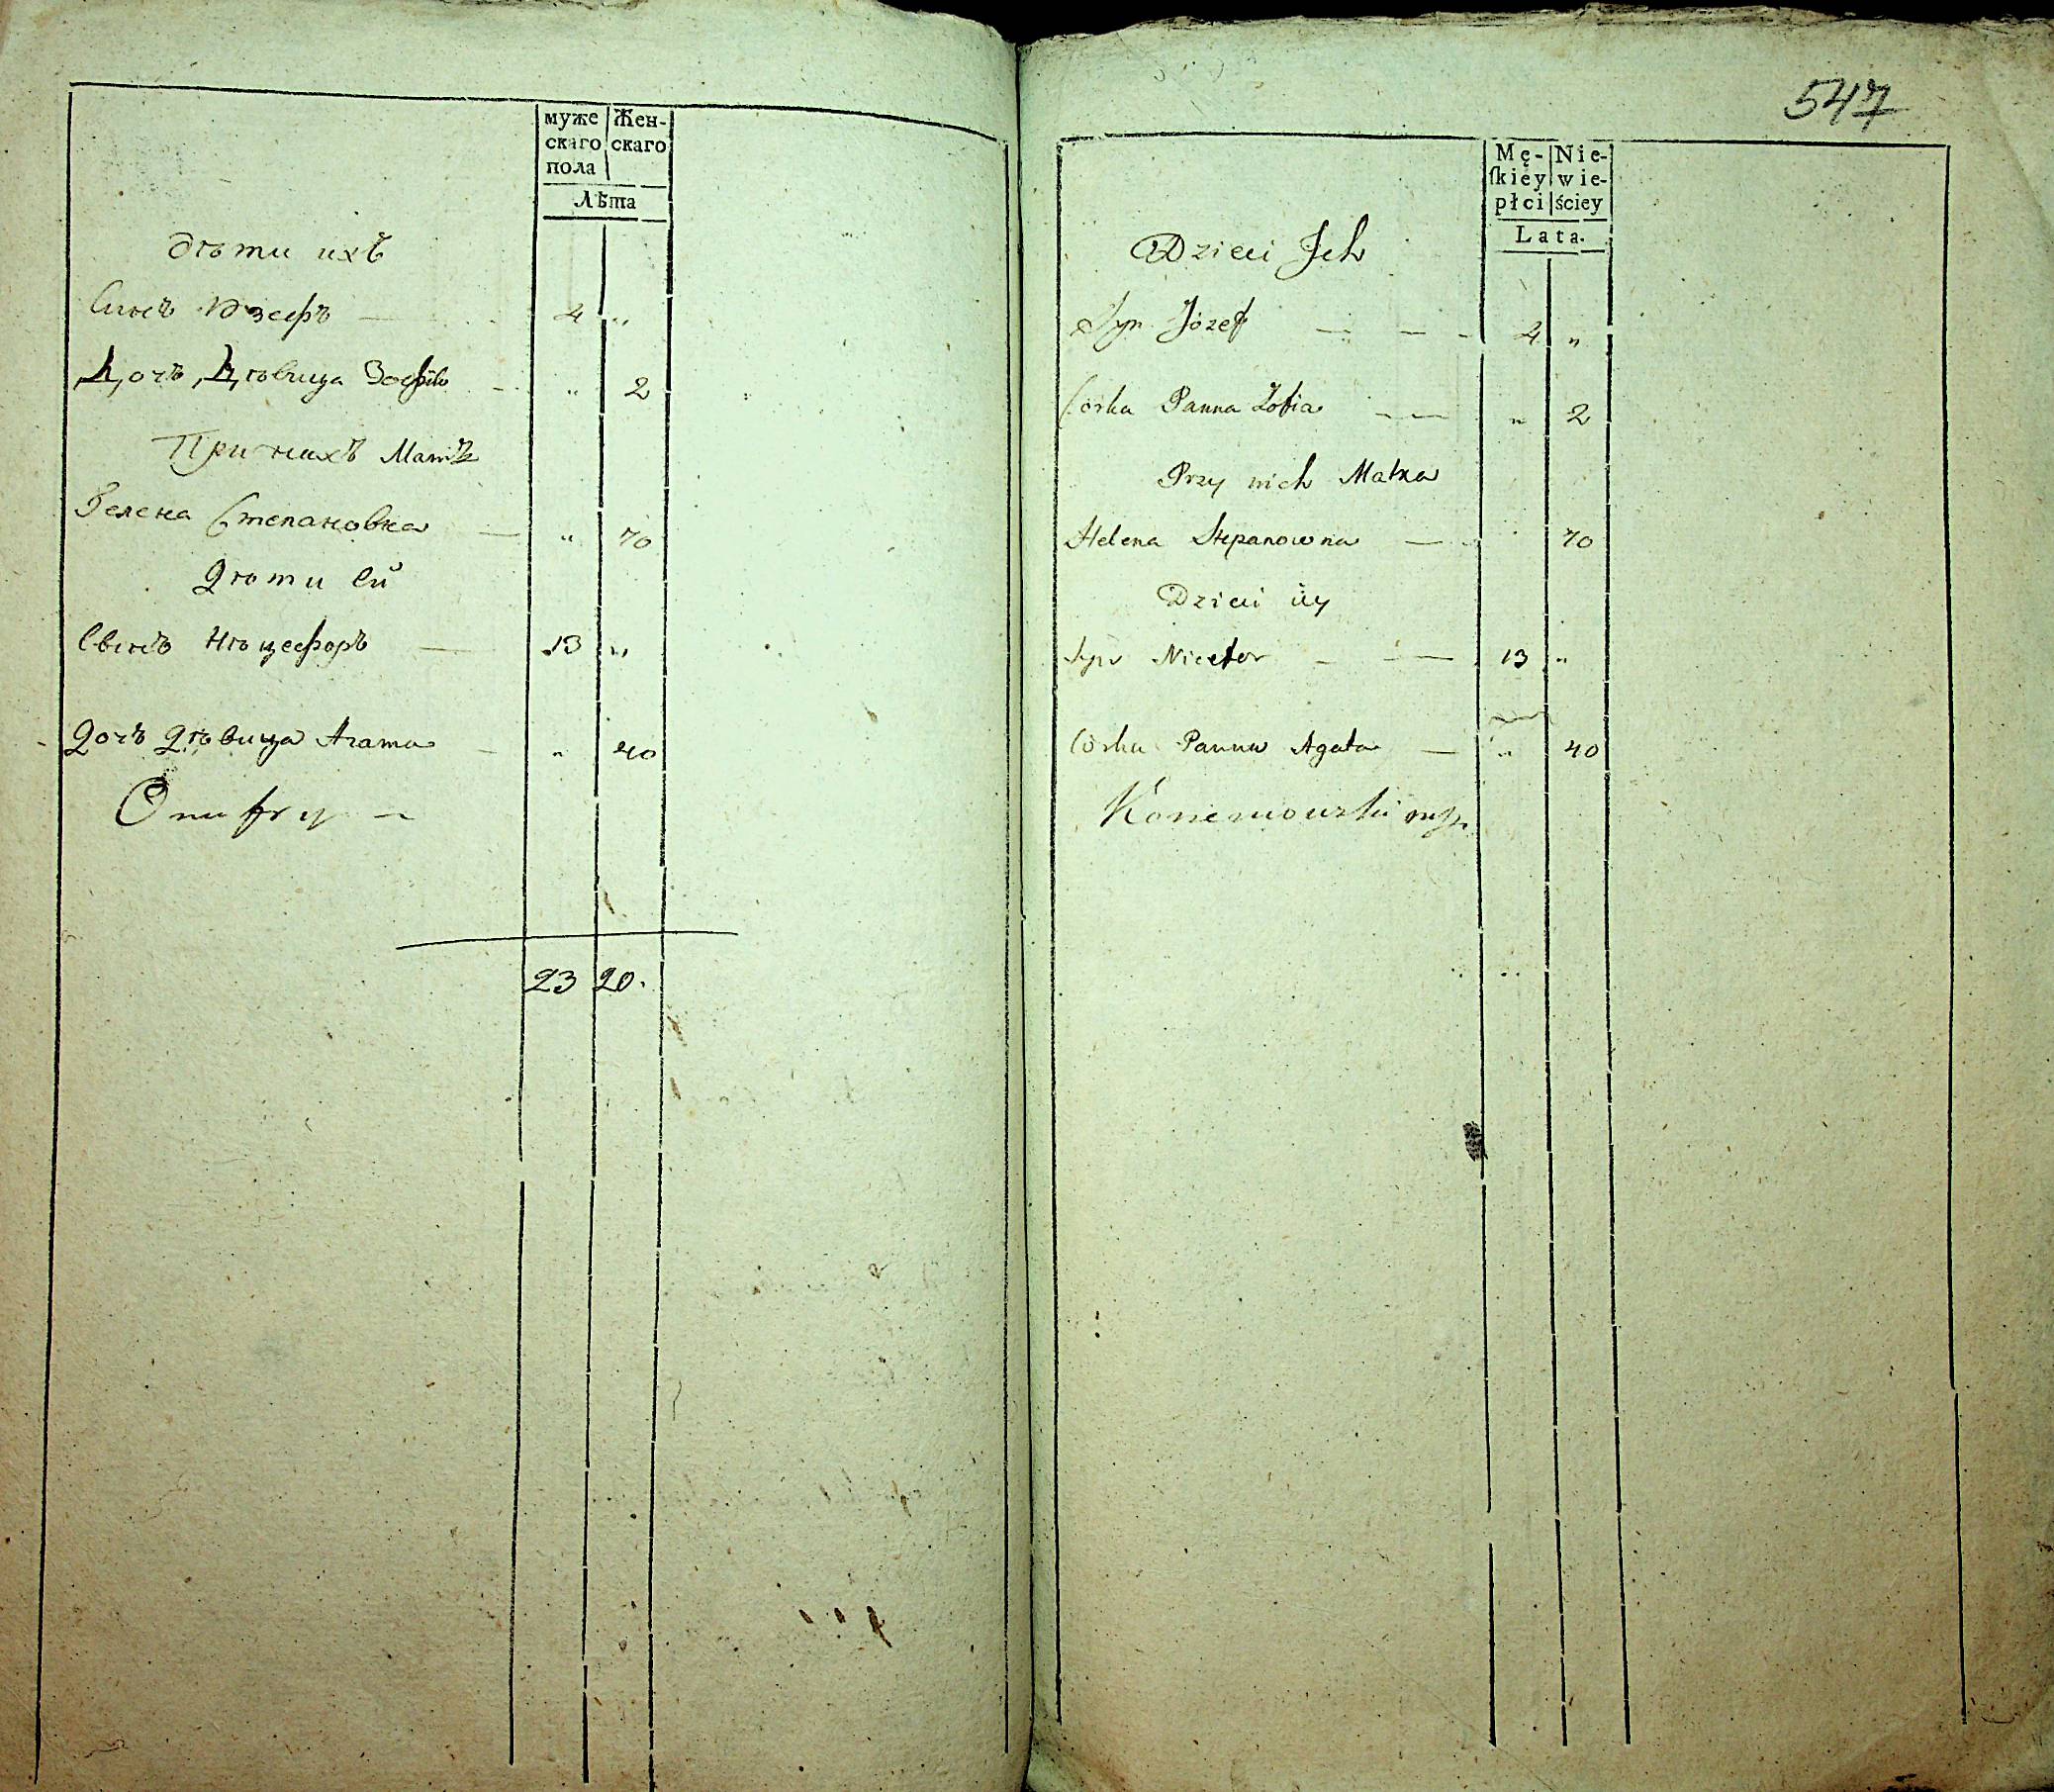 муже скаго пола
Жен- скаго
Лѣта
дѣти ихъ
Синъ Юзефъ 4 "
Дочъ Дѣвица Зофiя " 2
При нихъ Матка
Гелена Степановна " 70
Дѣти ей
Сынъ Нѣцефоръ 13 "
Дочъ Дѣвица Агата " 40
Onufry
23 20.
547
Mę- ſkiey płci
Nie- wie- ściey
Lata.
Dzieci Jch
Syn Józef 4 "
Córka Panna Zofia " 2
Przy nich Matka
Helena Stepanowna 70
Dzieci iey
Syn Nicefor 13 "
Córka Panna Agata " 40